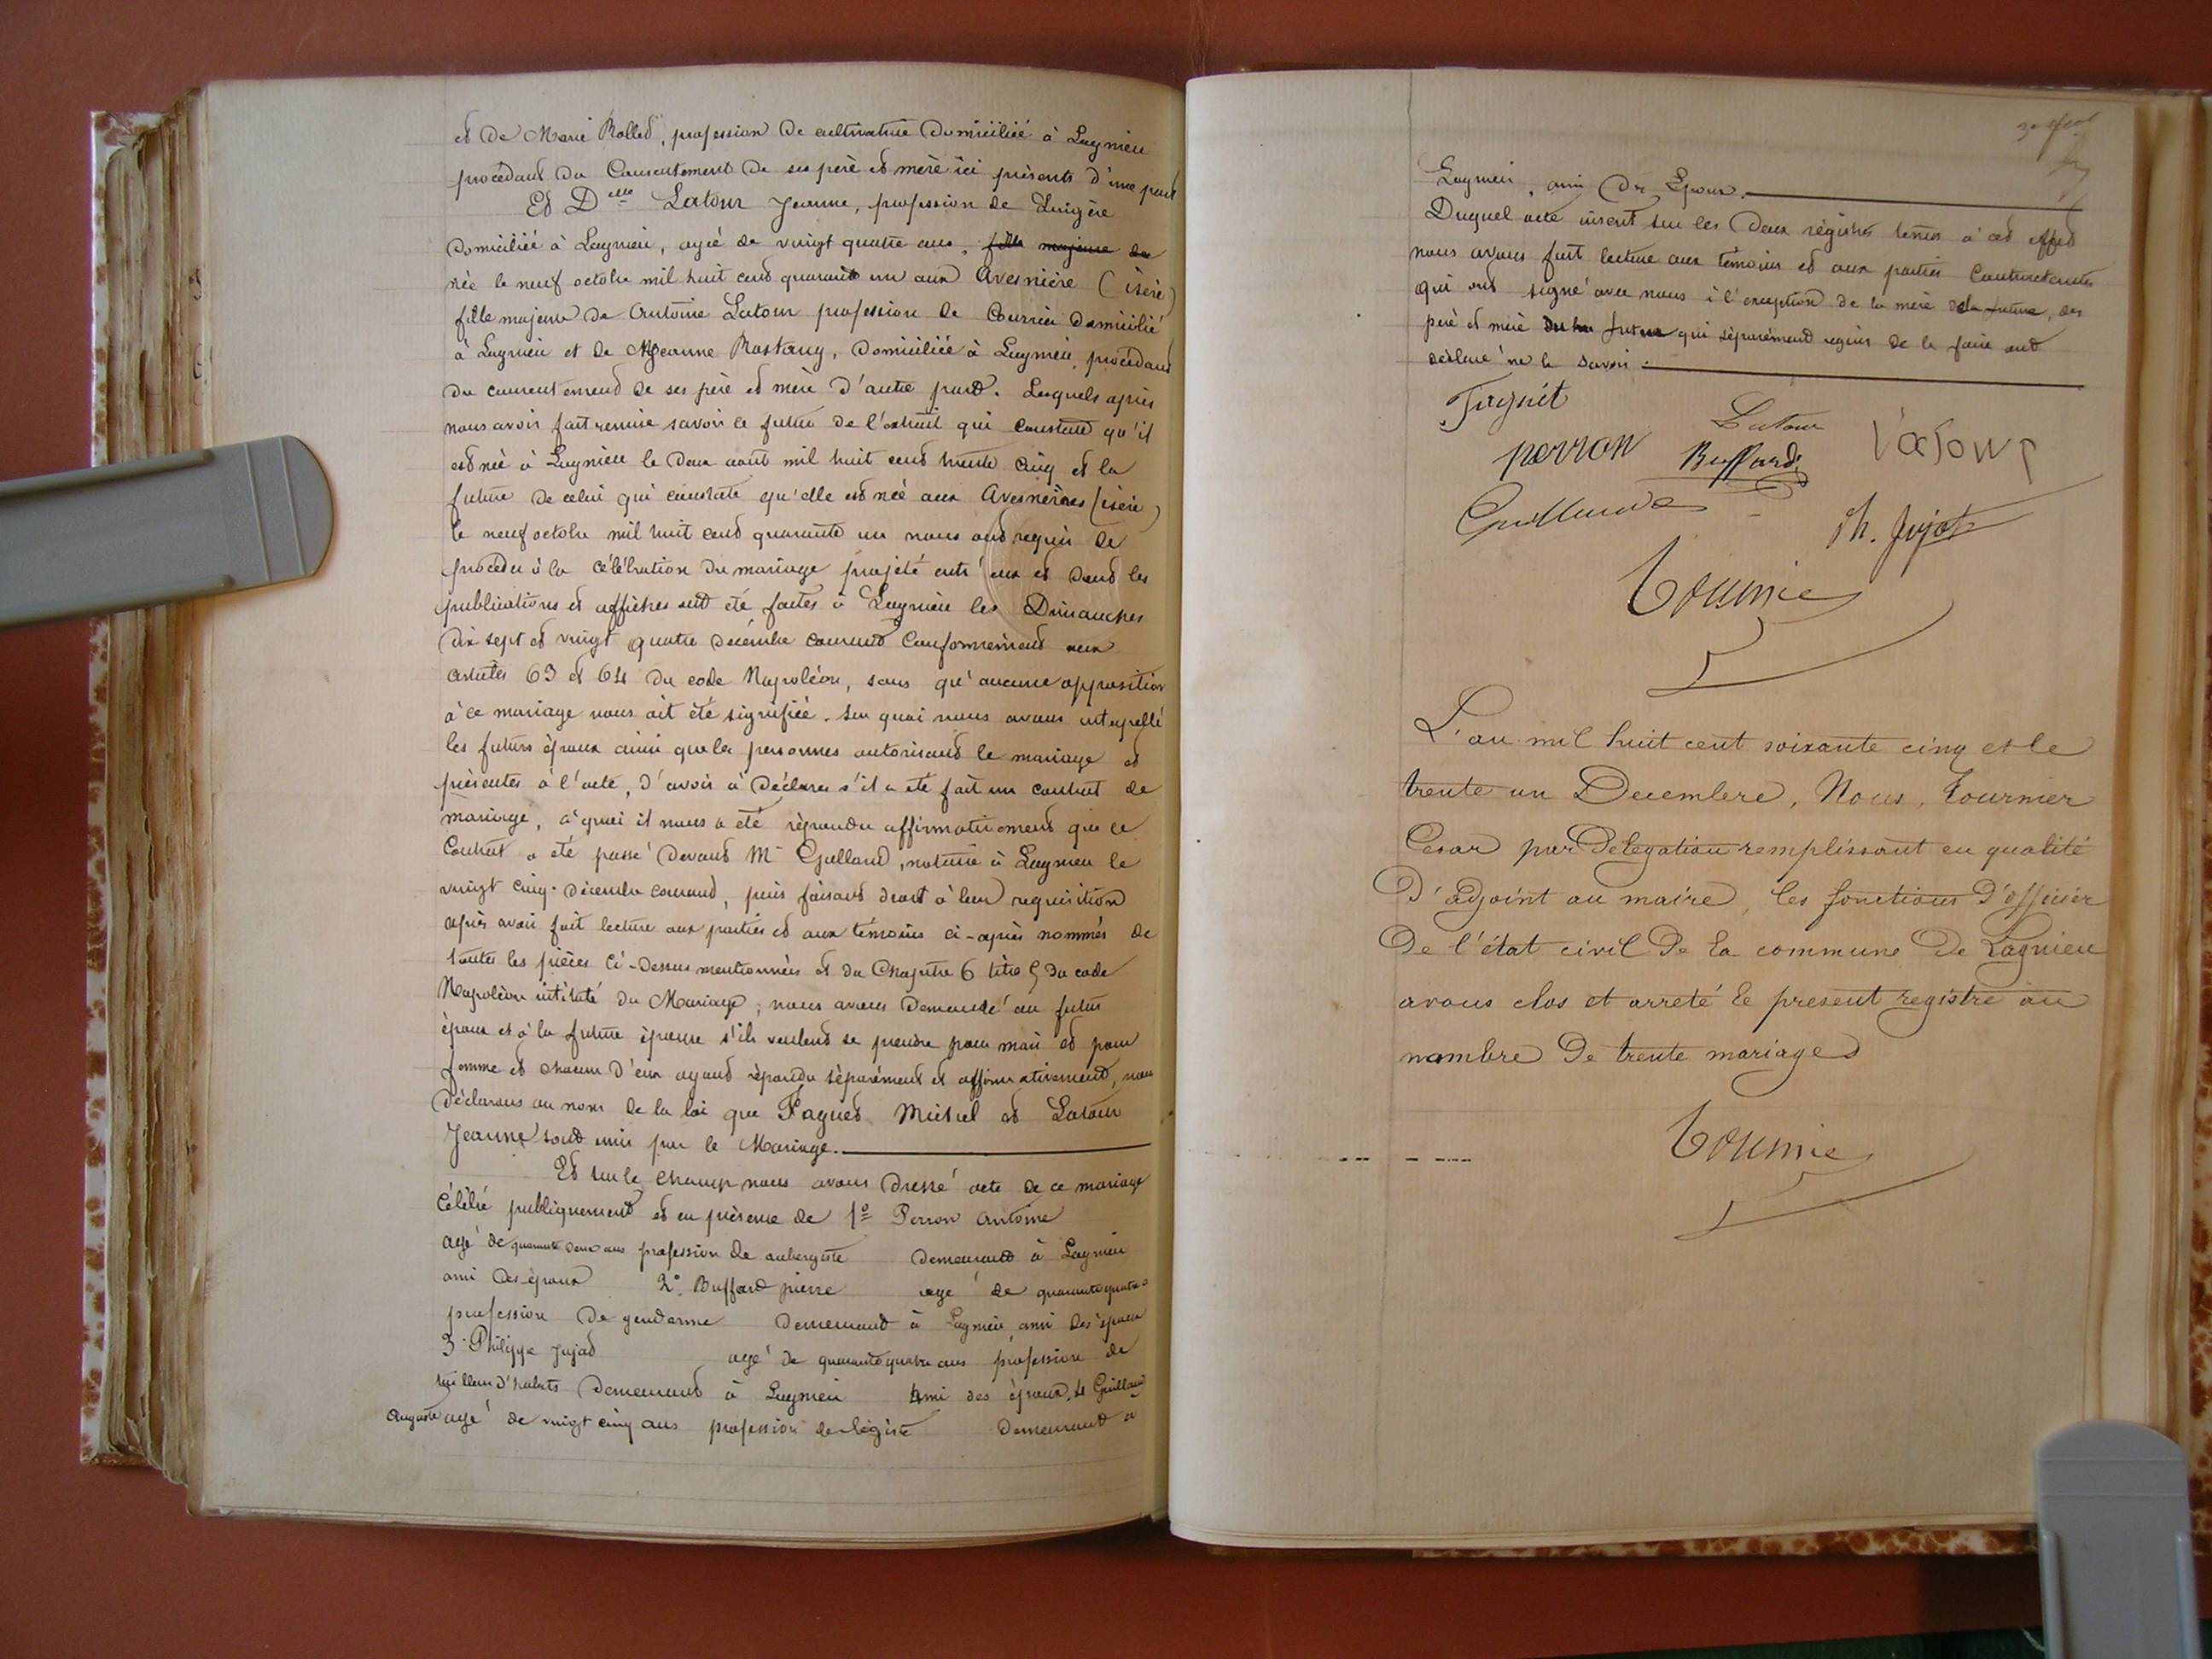 et de Marie Rollet, profession de cultivatrice domiciliée à Lagnieu
procédant du Consentement de ses père et mère ici présents d'une part
Et Dlle Latour Jeanne, profession de Lingère
domiciliée à Lagnieu, agée de vingt quatre ans, fille majeure de
née le neuf octobre mil huit cent quarante un aux Avesnière (isère)
fille majeure de Antoine Latour profession de domicilié
à Lagnieu et de Jeanne Rostaing, domiciliée à Lagnieu, procédant
du consentement de ses père et mère d'autre part. Lesquels après
nous avoir fait remise savoir le futur de l'extrait qui constate qu'il
est né à Lagnieu le deux aout mil huit cent trente cinq et la
future de celui qui constate qu'elle est née aux Avesnières (isère)
le neuf octobre mil huit cent quarante un nous ont requis de
procéder à la célébration du mariage projeté entr'eux et dont les
publications et affiches ont été faites à Lagnieu les Dimanches
dix sept et vingt quatre décembre courant Conformément aux
articles 63 et 64 du code Napoléon, sans qu'aucune opposition
à ce mariage nous ait été signifiée. Sur quoi nous avons interpellé
les futurs époux ainsi que les personnes autorisant le mariage et
présentes à l'acte, d'avoir à déclarer s'il a été fait un contrat de
mariage, à quoi il nous a été répondu affirmativement que ce
Contrat a été passé devant Me Gulland, notaire à Lagnieu le
vingt cinq décembre courant, puis faisant droit à leur requisition
après avoir fait lecture aux parties et aux témoins ci-après nommés de
toutes les pièces ci-dessus mentionnées et du Chapitre 6 titre 5 du code
Napoléon intitulé du Mariage, nous avons demandé au futur
époux et à la future épouse s'ils veulent se prendre pour mari et pour
femme et chacun d'eux ayant répondu séparément et affirmativement, nous
déclarons au nom de la loi que Fagnet Michel et Latour
Jeanne sont unis par le Mariage.
Et sur le champ nous avons dressé acte de ce mariage
Célébré publiquement et en présence de 1º Perron Antoine
agé de quarante deux ans profession de aubergiste demeurant à Lagnieu
ami des époux 2º Buffard pierre agé de quarante quatre
profession de gendarme demeurant à Lagnieu ami des époux
3º Philippe Jujat agé de quarante quatre ans profession de
tailleur d'habits demeurant à Lagnieu Ami des époux, 4 Guilland
Auguste agé de vingt cinq ans profession de légiste demeurant à
Lagnieu, ami des Epoux.
Duquel acte inscrit sur les deux régistres tenus à cet effet
nous avons fait lecture aux témoins et aux parties Contractantes
qui ont signé avec nous à l'exception de la mère de la future, des
père et mère du futur qui séparément requis de le faire ont
déclaré ne le savoir.
Fagnét
Latour
perron Buffard latour
Guilland
Ph. Jujat
tournier
L'an mil huit cent soixante cinq et le
trente un Decembre, Nous, tournier
Cesar par Delegation remplissant en qualité
D'adjoint au maire, les fonctions D'officier
De l'état civil De la commune De Lagnieu
avons clos et arreté le present registre au
nombre De trente mariages
tournier